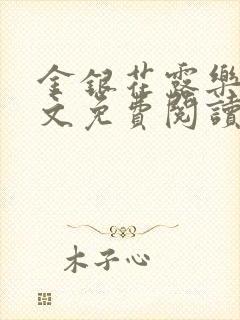 金銀花露樂
文免費閱讀
木子心